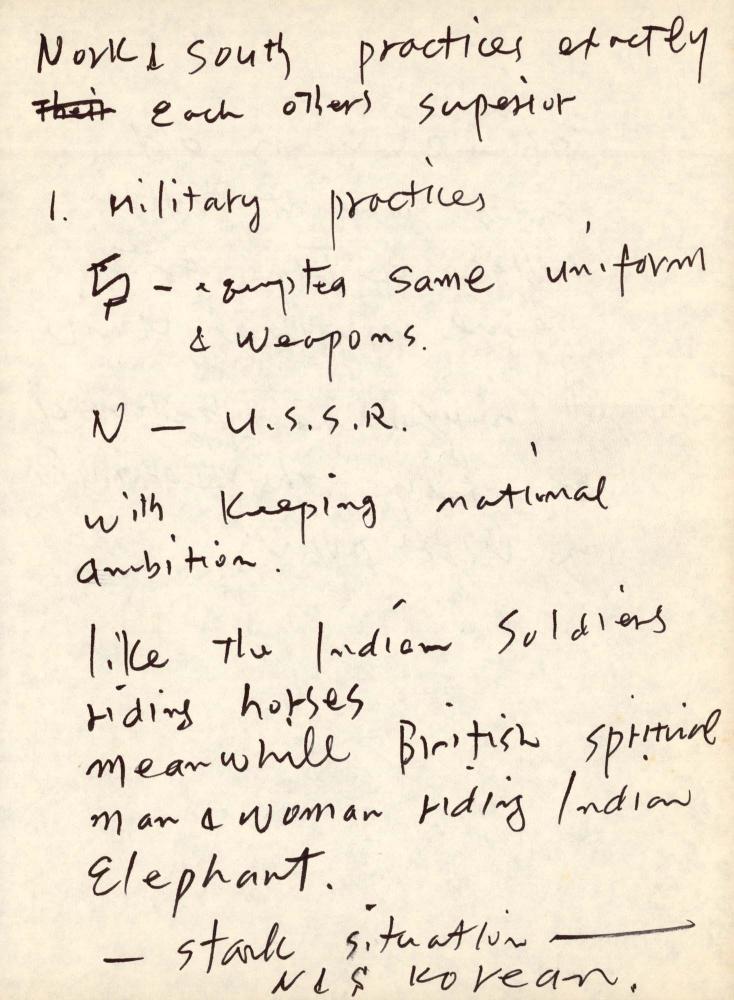 Nork & South practices exactly
Their each others superior
1. military practices
S - same uniform
& weapons.
N - U.S.S.R.
with keeping national
ambition.
like the Indian Soldiers
riding horses
meanwhill British spritual
man & woman riding Indian
Elephant.
- stark situation -
N & S Korean.